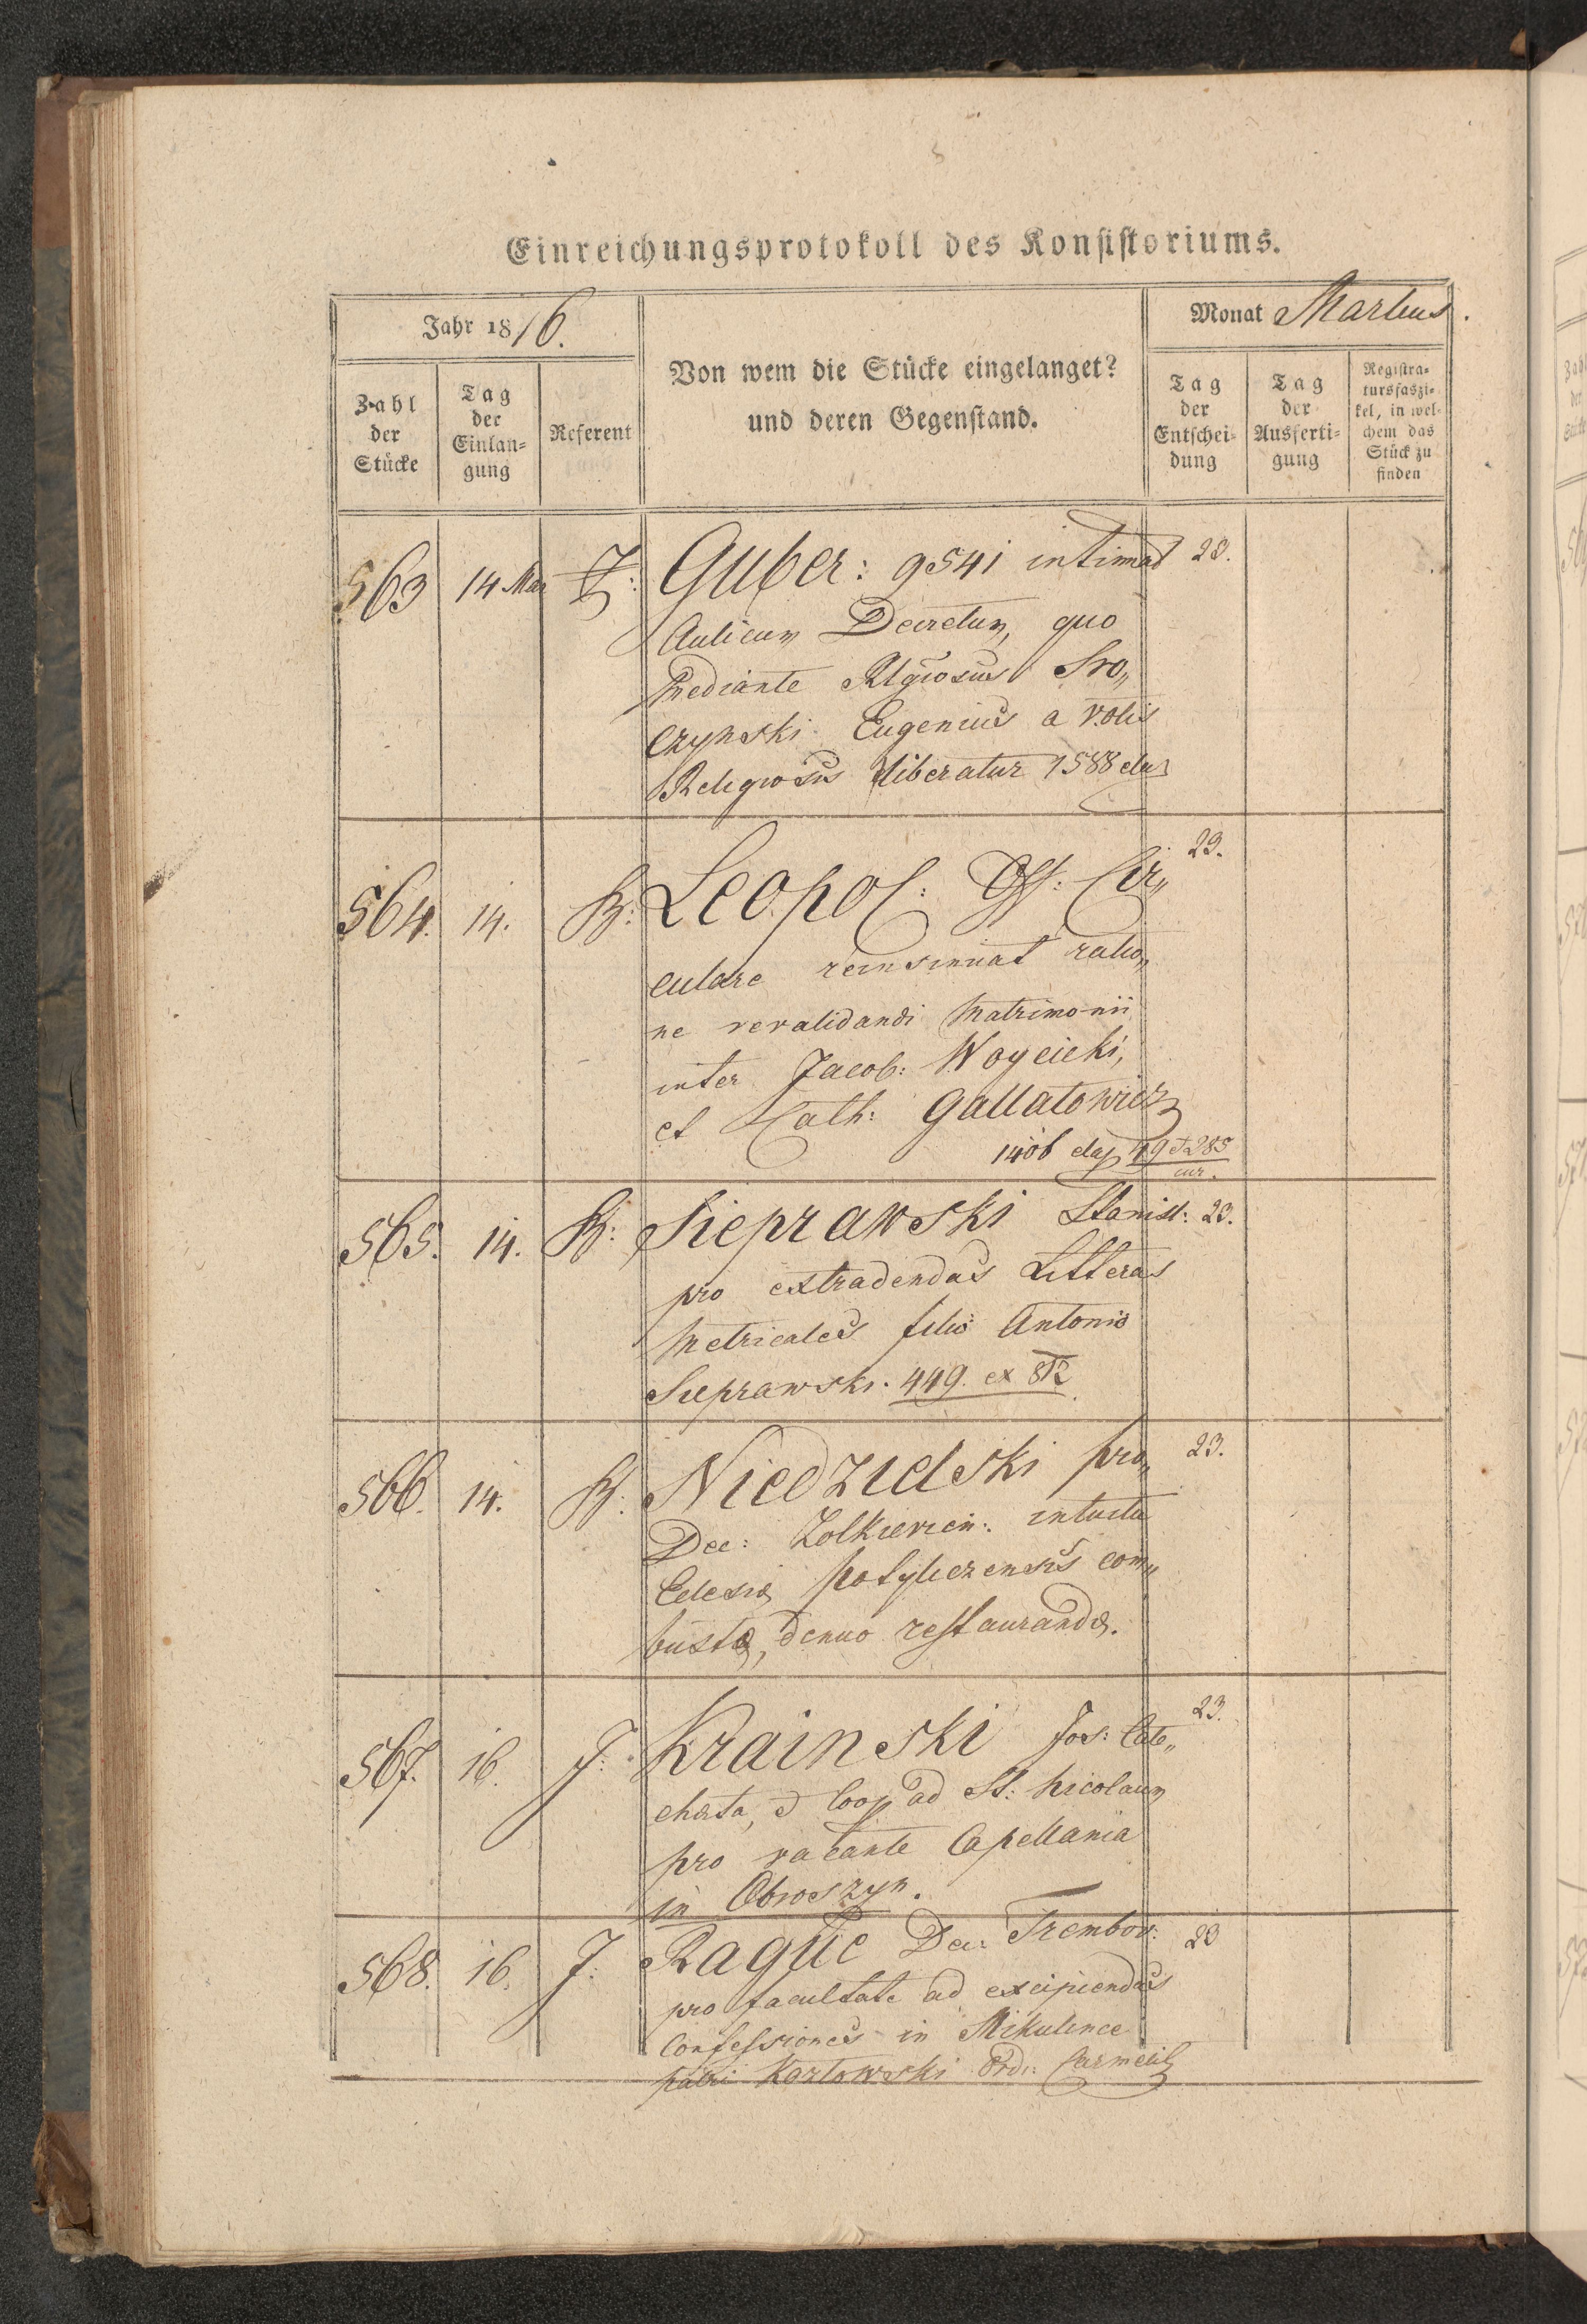 Einreichungsprotokoll des Konsistoriums.
Jahr 1816.
Monat Martius.
Zahl der Stücke
Tag der Einlan-gung
Referent
Von wem die Stücke eingelanget?
und deren Gegenstand.
Tag der Entschei-dung
Tag der Ausferti-gung
Registra-tursfaszi-kel, in wel-chem das Stück zu finden
563 14 Mar Guber: 9541 intimat 23.
Aulicum Decretum, quo
mediante Rlgiosus Sro„
czynski Eugenius a votis
Religiosis liberatur 1588
564. 14. B: Leopol: Off: Cir„ 23.
culare reinsinuat ratio„
ne revalidandi Matrimonii
inter Jacob: Woycicki,
et Cath: Gallatowicz
1406
565. 14. B: Sieprawski Stanisl: 23.
pro extradendas Litteras
Metricales filio Antonio
Sieprawski. 449. ex 812.
566. 14. B: Niedzielski pro„ 23.
Dec: Zolkievien: intuitu
Eclesiæ Potyliczensis com„
bustæ, denuo restaurandæ.
567. 16. J: Krainski Jos: Cate„ 23.
cheta, et Coop ad St: Nicolaum
pro vacante Capellania
in Obroszyn.
568. 16. J: Rague Dec: Trembov: 23
pro facultate ad excipiendas
Confessiones in Mikulince
patri Kozlowski Ord: Carmelit